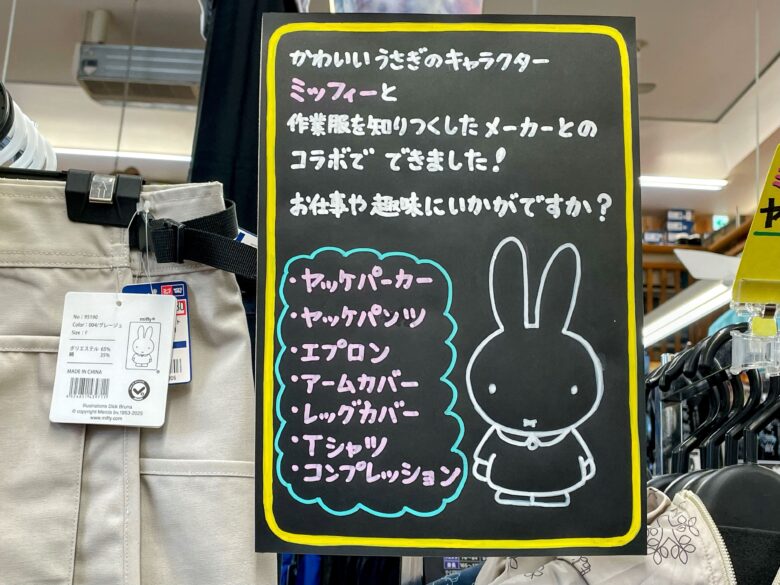 かわいいうさぎのキャラクター
ミッフィーと
作業服を知りつくしたメーカーとの
コラボで できました!
お仕事や趣味にいかがですか?
・ヤッケパーカー
・ヤッケパンツ
・エプロン
・アームカバー
・レッグカバー
・Tシャツ
・コンプレッション
No:95190
Color:004/グレージュ
Size:F
ポリエステル 65%
綿 35%
MADE IN CHINA
miffy
Illustrations Dick Bruna
© copyright Mercis bv,1953-2025
www.miffy.com